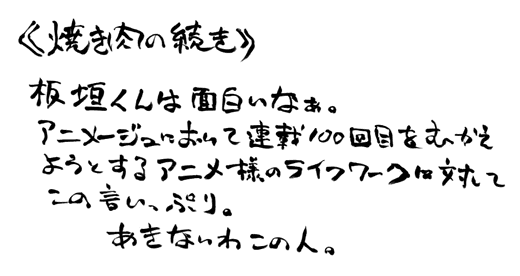 《焼き肉の続き》
板垣くんは面白いなぁ。
アニメージュにおいて連載100回目をむかえ
ようとするアニメ様のライフワークに対して
この言いっぷり。
あきないわこの人。